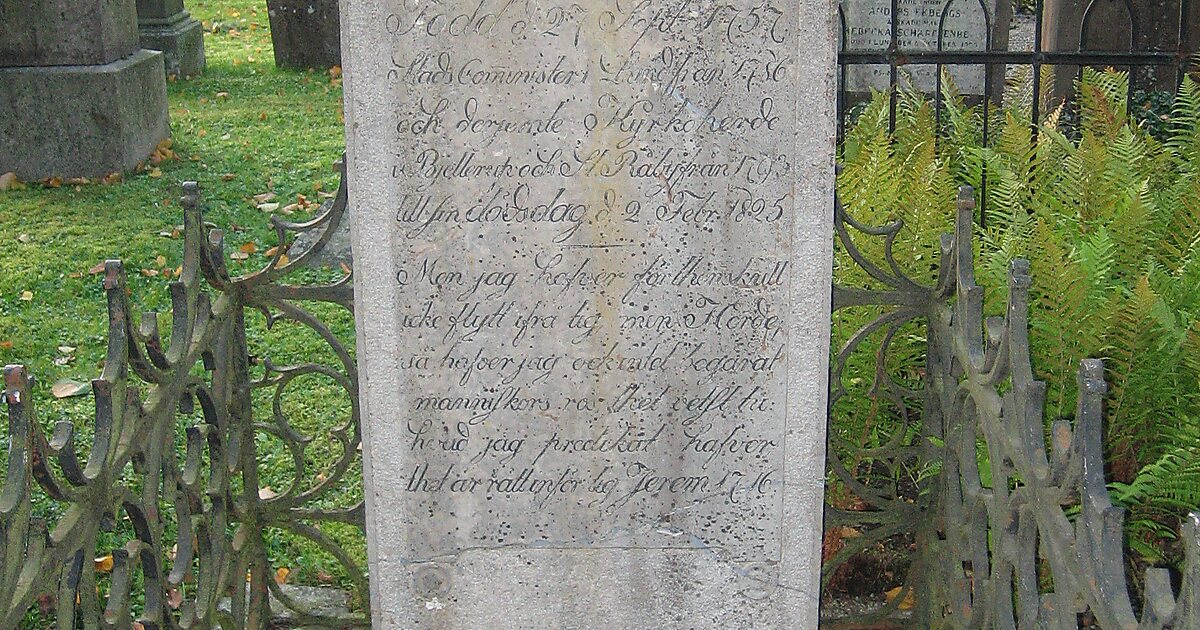 ANDERS EKBERGS
Född d. 27 Sept. 1757
Stads Cominister i Lund från 1786
och derjemte Kyrkoherde
i Bjellerup och St. Råby från 1793
till sin dödsdag d. 2 Febr. 1825
Men jag hafver för then skull
icke flytt ifrå tig min Herde,
så hafver jag ock intet begärat
menniskors ros thet vetst tu:
hvad jag predikat hafver
thet är rätt inför tig Jerem. 17 16